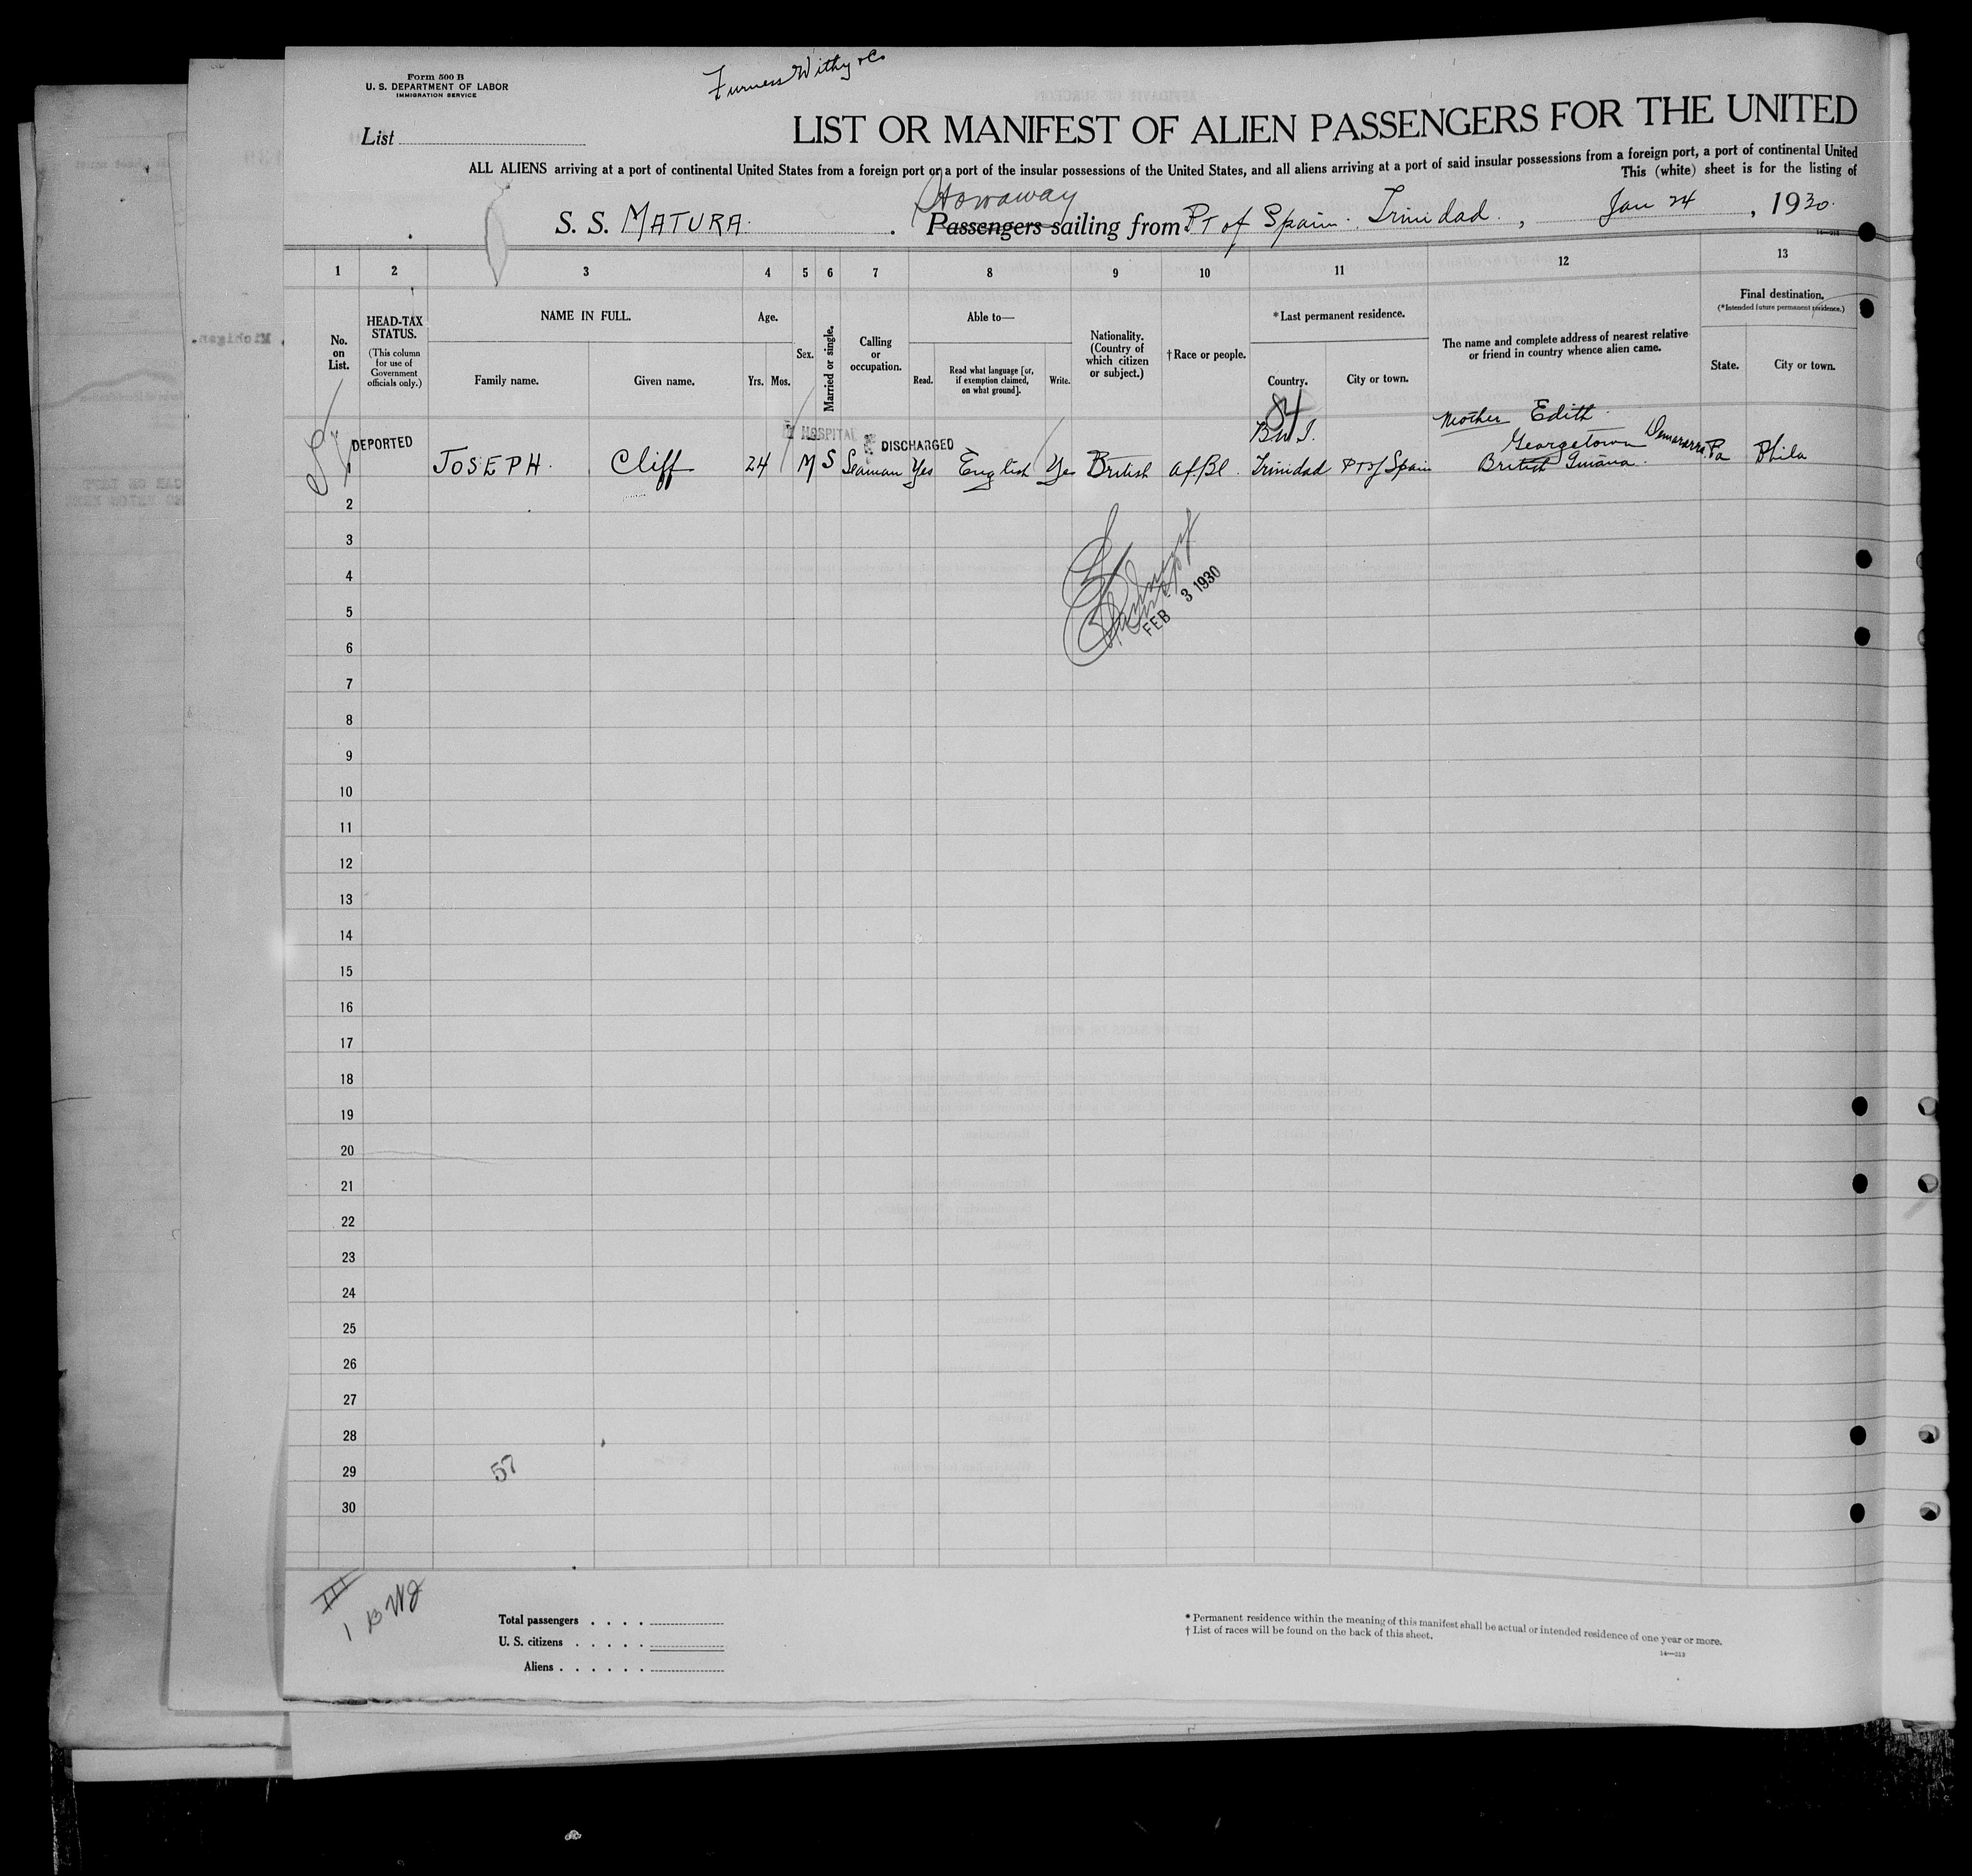 Form 500 B
U. S. DEPARTMENT OF LABOR
IMMIGRATION SERVICE
Furness Withy & Co
List
LIST OR MANIFEST OF ALIEN PASSENGERS FOR THE UNITED
ALL ALIENS arriving at a port of continental United States from a foreign port or a port of the insular possessions of the United States, and all aliens arriving at a port of said insular possessions from a foreign port, a port of continental United
This (white) sheet is for the listing of
Stowaway
S. S. MATURA. Passengers sailing from Pt of Spain. Trinidad., Jan 24, 1930.
1 2 3 4 5 6 7 8 9 10 11 12 13
No. on List.
HEAD-TAX STATUS.
(This column for use of Government officials only.)
NAME IN FULL.
Family name.
Given name.
Age.
Yrs. Mos.
Sex.
Married or single.
Calling or occupation.
Able to—
Read.
Read what language [or, if exemption claimed, on what ground].
Write.
Nationality. (Country of which citizen or subject.)
†Race or people.
*Last permanent residence.
Country.
City or town.
The name and complete address of nearest relative or friend in country whence alien came.
Final destination.
(*Intended future permanent residence.)
State.
City or town.
84
DEPORTED
HOSPITAL
DISCHARGED
B.W.I.
Mother Edith
Georgetown Demararra
1 JOSEPH. Cliff 24 M S Seaman Yes English Yes British Af.Bl. Trinidad Pt of Spain British Guiana. Pa Phila
2
3
4
5
6
FEB 3 1930
7
8
9
10
11
12
13
14
15
16
17
18
19
20
21
22
23
24
25
26
27
28
29
57
30
1 BWI
Total passengers
U. S. citizens
Aliens
* Permanent residence within the meaning of this manifest shall be actual or intended residence of one year or more.
† List of races will be found on the back of this sheet.
14—213
Michigan.